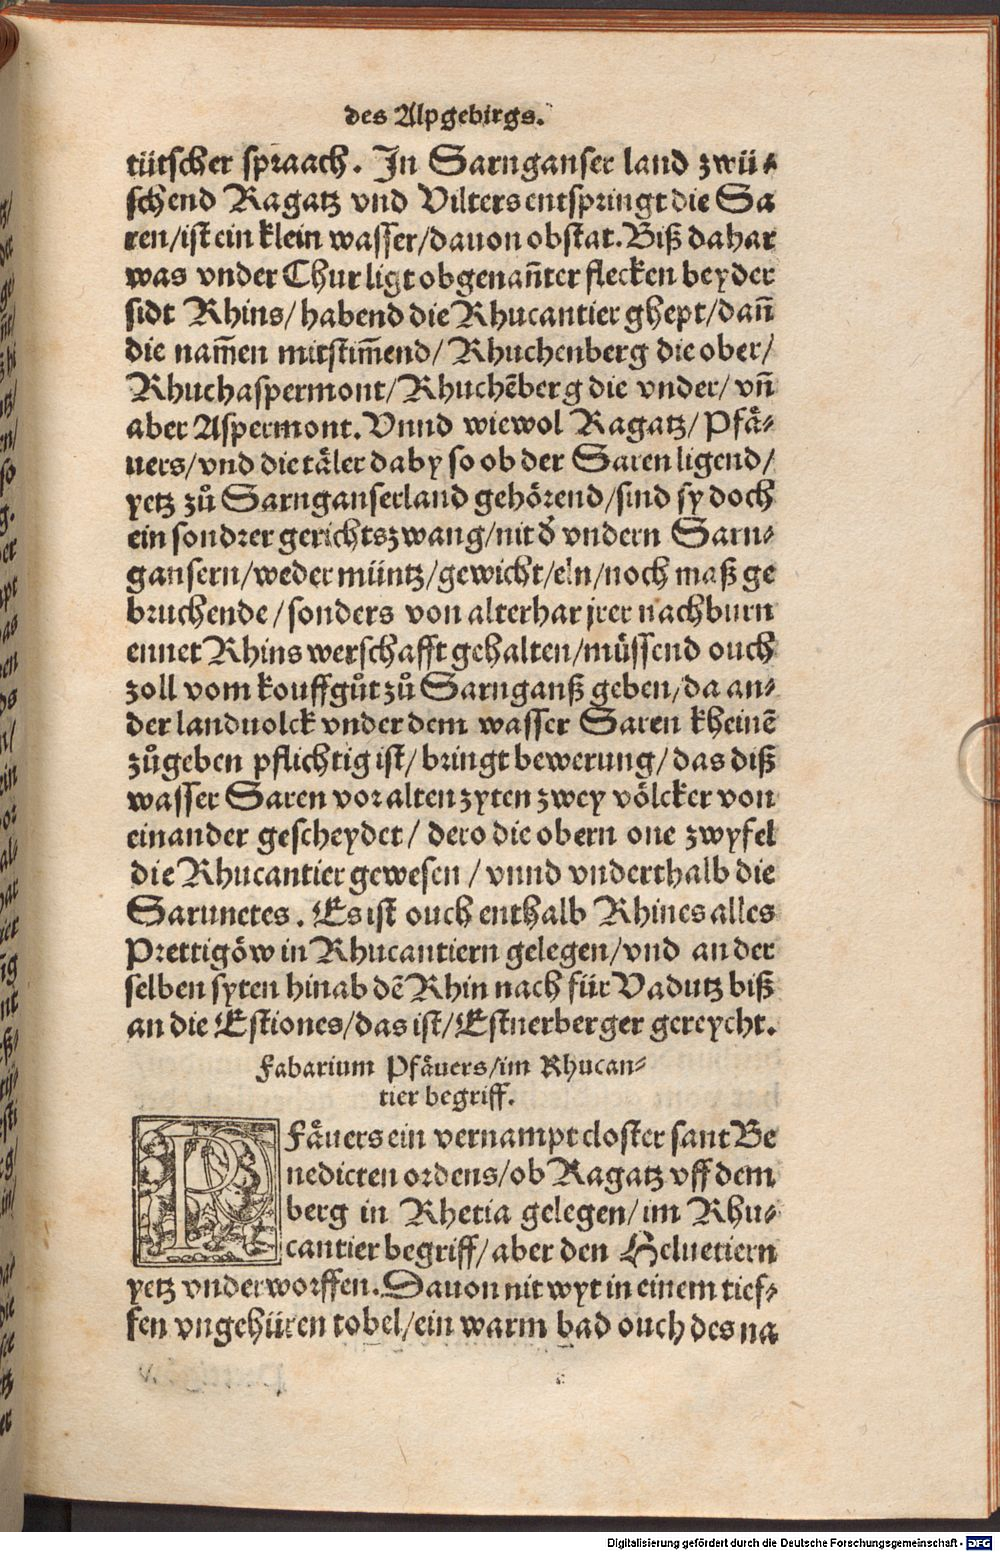 des Alpgebirgs.
tütscher spraach. In Sarnganser land zwü⸗
schend Ragatz vnd Vilters entspringt die Sa
ren/ist ein klein wasser/dauon obstat. Biß dahar
was vnder Chur ligt obgenañter flecken beyder
sidt Rhins/habend die Rhucantier ghept/dañ
die nam̃en mitstim̃end/Rhuchenberg die ober/
Rhuchaspermont/Rhuchẽberg die vnder/vñ
aber Aspermont. Vnnd wiewol Ragatz/Pfä⸗
uers/vnd die täler daby so ob der Saren ligend/
yetz zů Sarnganserland gehörend/sind sy doch
ein sondrer gerichtszwang/nit d̕ vndern Sarn⸗
gansern/weder müntz/gewicht/eln/noch maß ge
bruchende/sonders von alterhar jrer nachburn
ennet Rhins werschafft gehalten/müssend ouch
zoll vom kouffgůt zů Sarnganß geben/da an⸗
der landuolck vnder dem wasser Saren kheinẽ
zůgeben pflichtig ist/bringt bewerung/das diß
wasser Saren vor alten zyten zwey völcker von
einander gescheydet/dero die obern one zwyfel
die Rhucantier gewesen/vnnd vnderthalb die
Sarunetes. Es ist ouch enthalb Rhines alles
Prettigöw in Rhucantiern gelegen/vnd an der
selben syten hinab dẽ Rhin nach für Vadutz biß
an die Estiones/das ist/Estnerberger gereycht.
Fabarium Pfäuers/im Rhucan⸗
tier begriff.
PFäuers ein vernampt closter sant Be
nedicten ordens/ob Ragatz vff dem
berg in Rhetia gelegen/im Rhu⸗
cantier begriff/aber den Heluetiern
yetz vnderworffen. Dauon nit wyt in einem tief⸗
fen vngehüren tobel/ein warm bad ouch des na
Digitalisierung gefördert durch die Deutsche Forschungsgemeinschaft - DFG